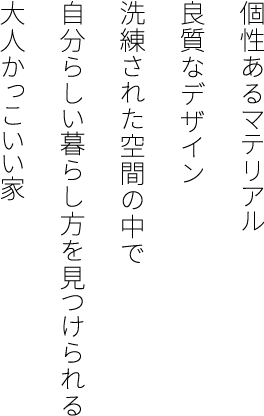 個性あるマテリアル
良質なデザイン
洗練された空間の中で
自分らしい暮らし方を見つけられる
大人かっこいい家